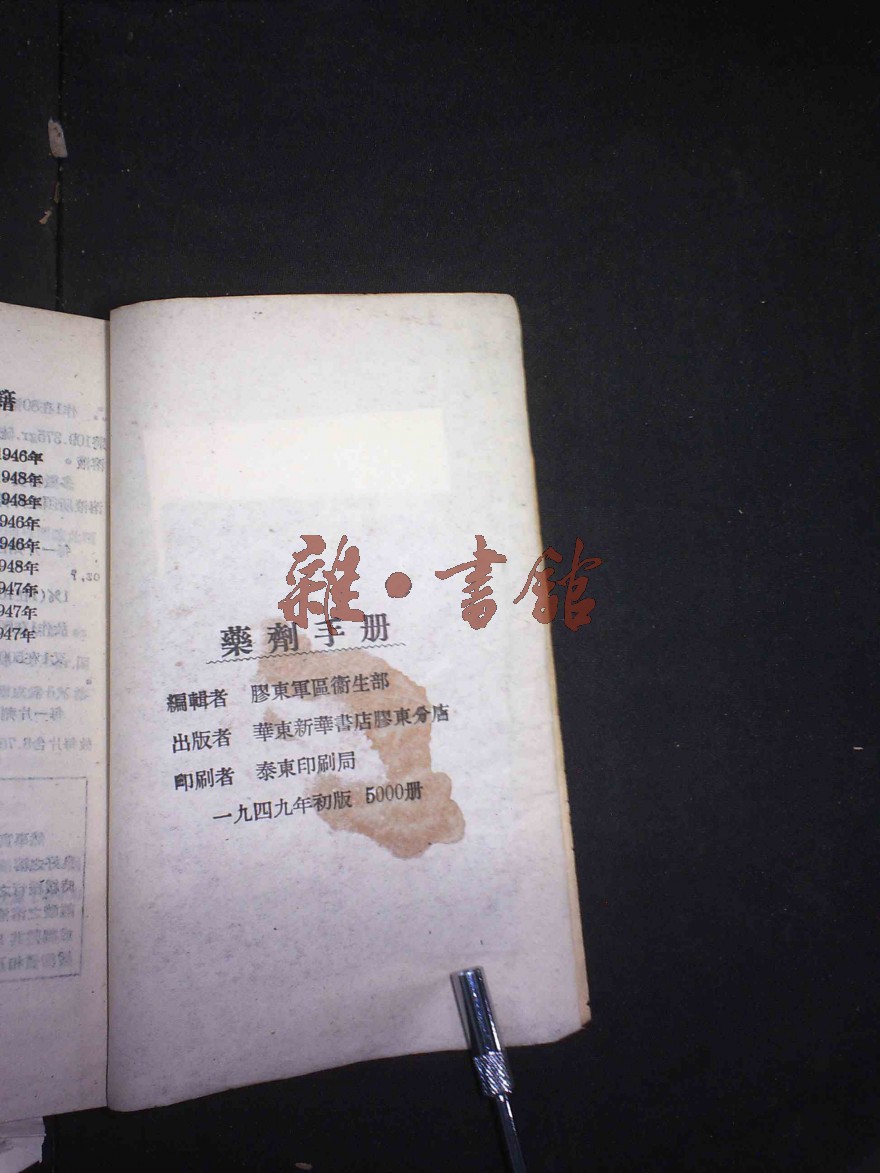 籍
1946年
1948年
1948年
1946年
1946年
1948年
1947年
1947年
1947年
雜·書館
藥劑手册
編輯者 膠東軍區衞生部
出版者 華東新華書店膠東分店
印刷者 泰東印刷局
一九四九年初版 5000册